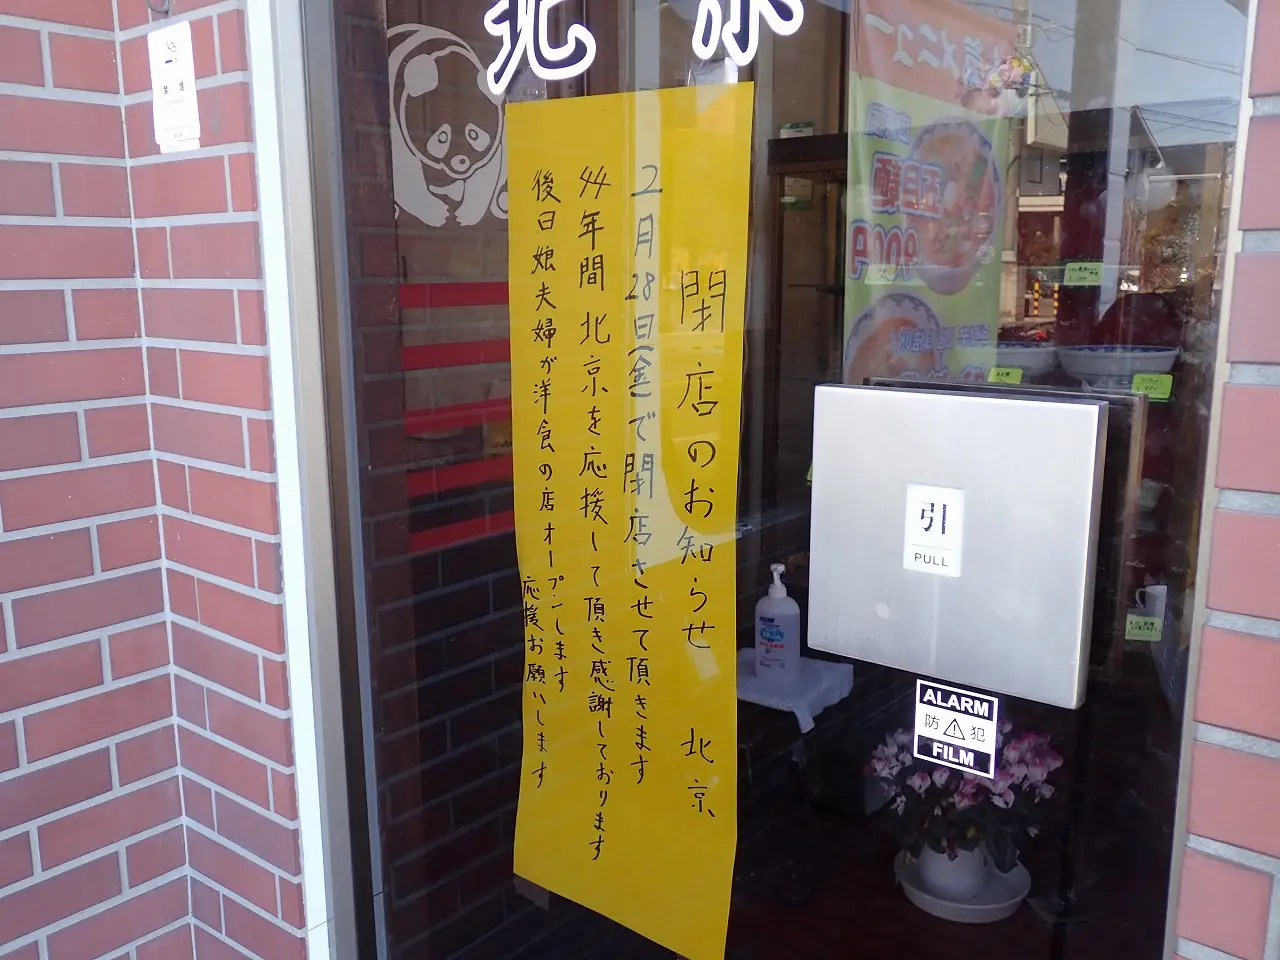 北京
閉店のお知らせ 北京
2月28日(金)で閉店させて頂きます
44年間北京を応援して頂き感謝しております
後日娘夫婦が洋食の店オープンします
応援お願いします
引
PULL
ALARM
防犯
FILM
メニュー
五目麺
900円